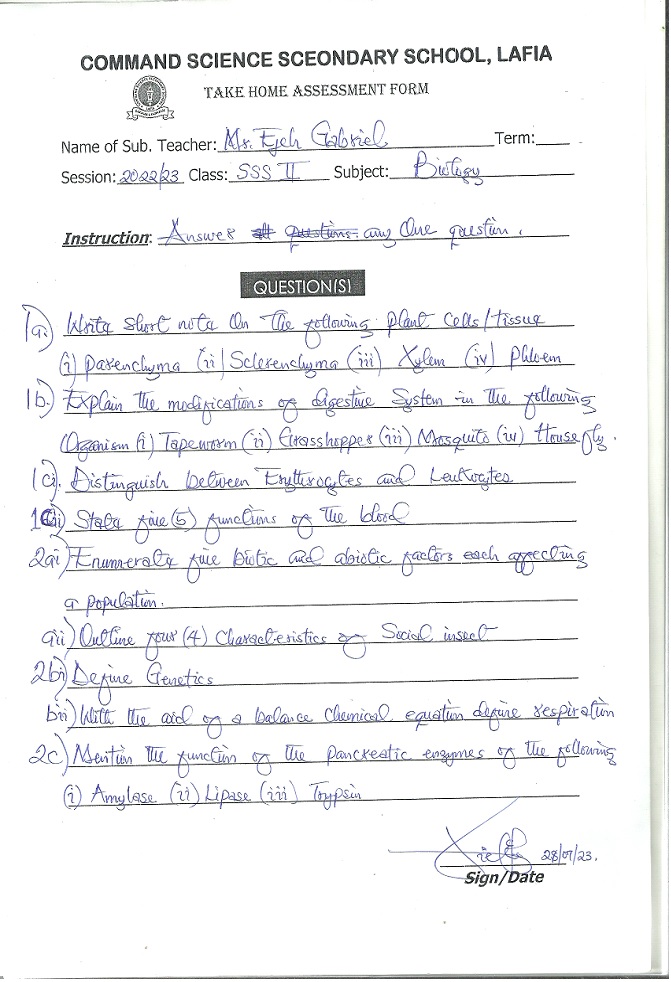 COMMAND SCIENCE SCEONDARY SCHOOL, LAFIA
TAKE HOME ASSESSMENT FORM
Name of Sub. Teacher: Mr. Ejeh Gabriel Term:
Session: 2022/23 Class: SSS II Subject: Biology
Instruction: Answer any One question.
QUESTION(S)
1a) Write short note On The following Plant Cells/tissue
(i) Parenchyma (ii) Sclerenchyma (iii) Xylem (iv) Phloem
1b.) Explain the modifications of digestive System in the following
Organism (i) Tapeworm (ii) Grasshopper (iii) Mosquito (iv) Housefly.
1ci. Distinguish between Erythrocytes and Leukocytes
1Cii) State five (5) functions of the blood
2ai) Enumerate five biotic and abiotic factors each affecting
a population.
aii) Outline four (4) Characteristics of Social insect
2bi) Define Genetics
bii) With the aid of a balance Chemical equation define respiration
2c) Mention the function of the Pancreatic enzymes of the following
(i) Amylase (ii) Lipase (iii) Trypsin
28/07/23.
Sign/Date